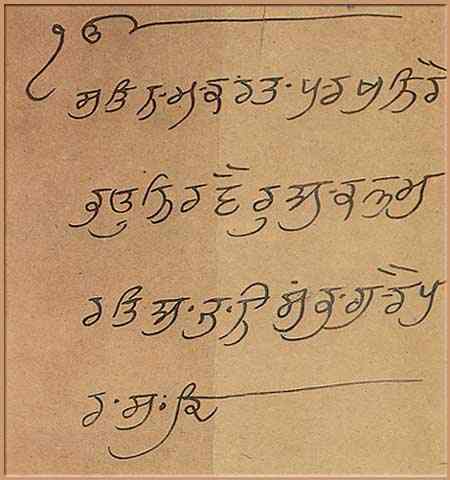 ੴ
ਸਤਿ ਨਾਮ ਕਰਤਾ ਪੁਰਖੁ ਨਿਰ
ਭਉ ਨਿਰਵੈਰੁ ਅਕਾਲ ਮੂ
ਰਤਿ ਅਜੂਨੀ ਸੈਭੰ ਗੁਰ ਪ
ਰਸਾਦਿ